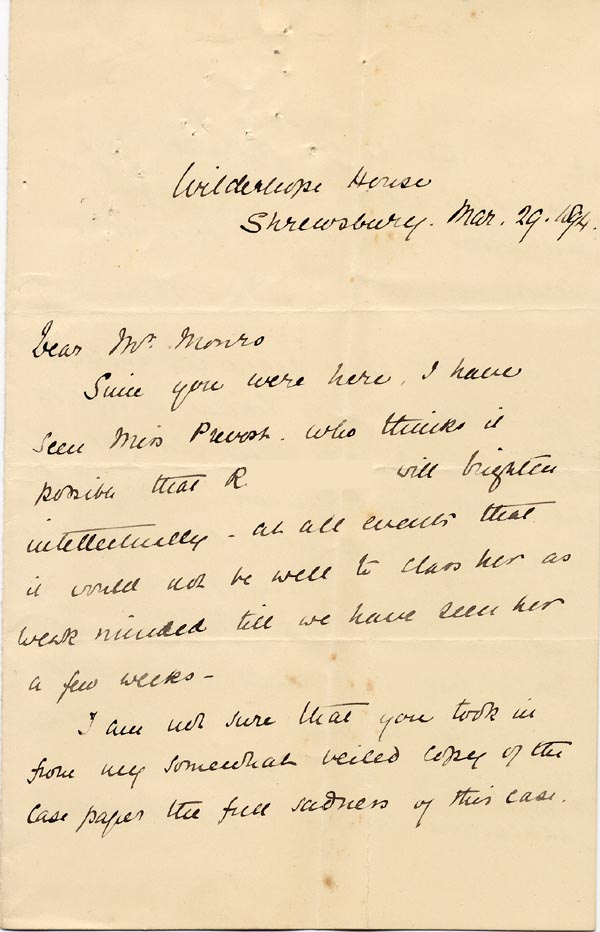 Wilderhope House
Shrewsbury. Mar. 29. 1894.
Dear Mr. Monro
Since you were here, I have
seen Miss Prevost. who thinks it
possible that R will brighten
intellectually - at all events that
it would not be well to class her as
weak minded till we have seen her
a few weeks -
I am not sure that you took in
from my somewhat veiled copy of the
case paper the full sadness of this case.